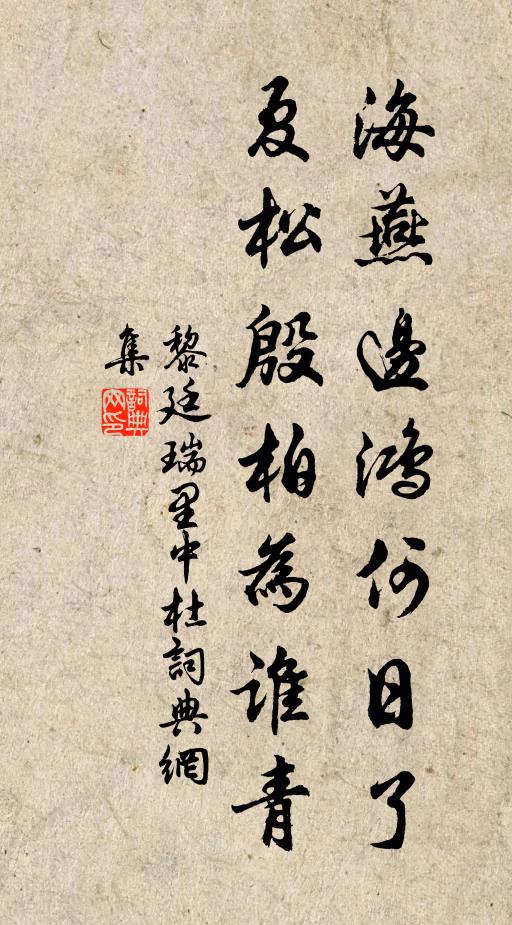 海燕邊鴻何日了
夏松殷柏為誰青
黎廷瑞里中杜詞典網
集
詞典網印